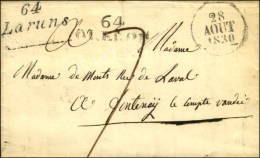 64
Laruns
64
OLERON
28
AOUT
1830
A Madame
Madame de Monts Rue de Laval
A fontenay le Compte vandée
7